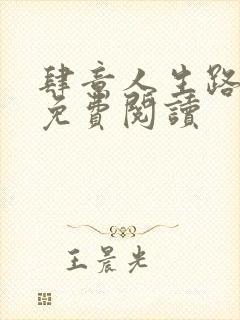 肆意人生路
免費閱讀
王晨光